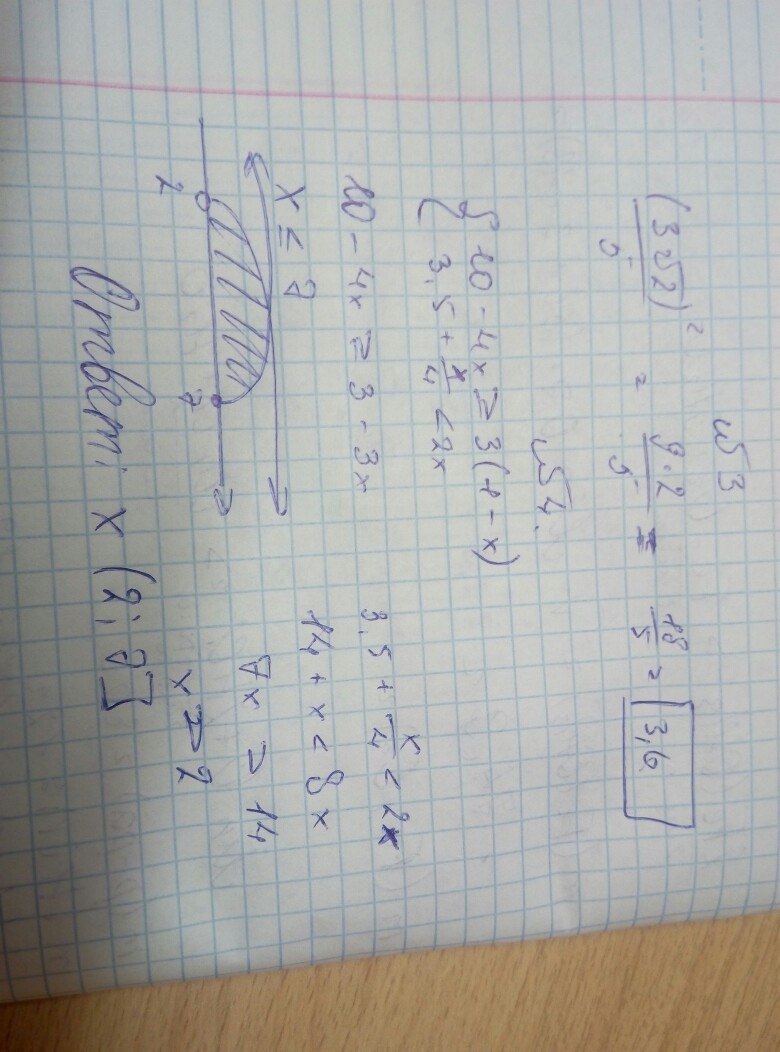 №3
(3√2)²/5 = 9·2/5 = 18/5 = 3,6
№4.
{ 10 - 4x ≥ 3(1 - x)
3,5 + x/4 < 2x
10 - 4x ≥ 3 - 3x
x ≤ 7
3,5 + x/4 < 2x
14 + x < 8x
7x > 14
x > 2
2 7
Ответ: x (2; 7]